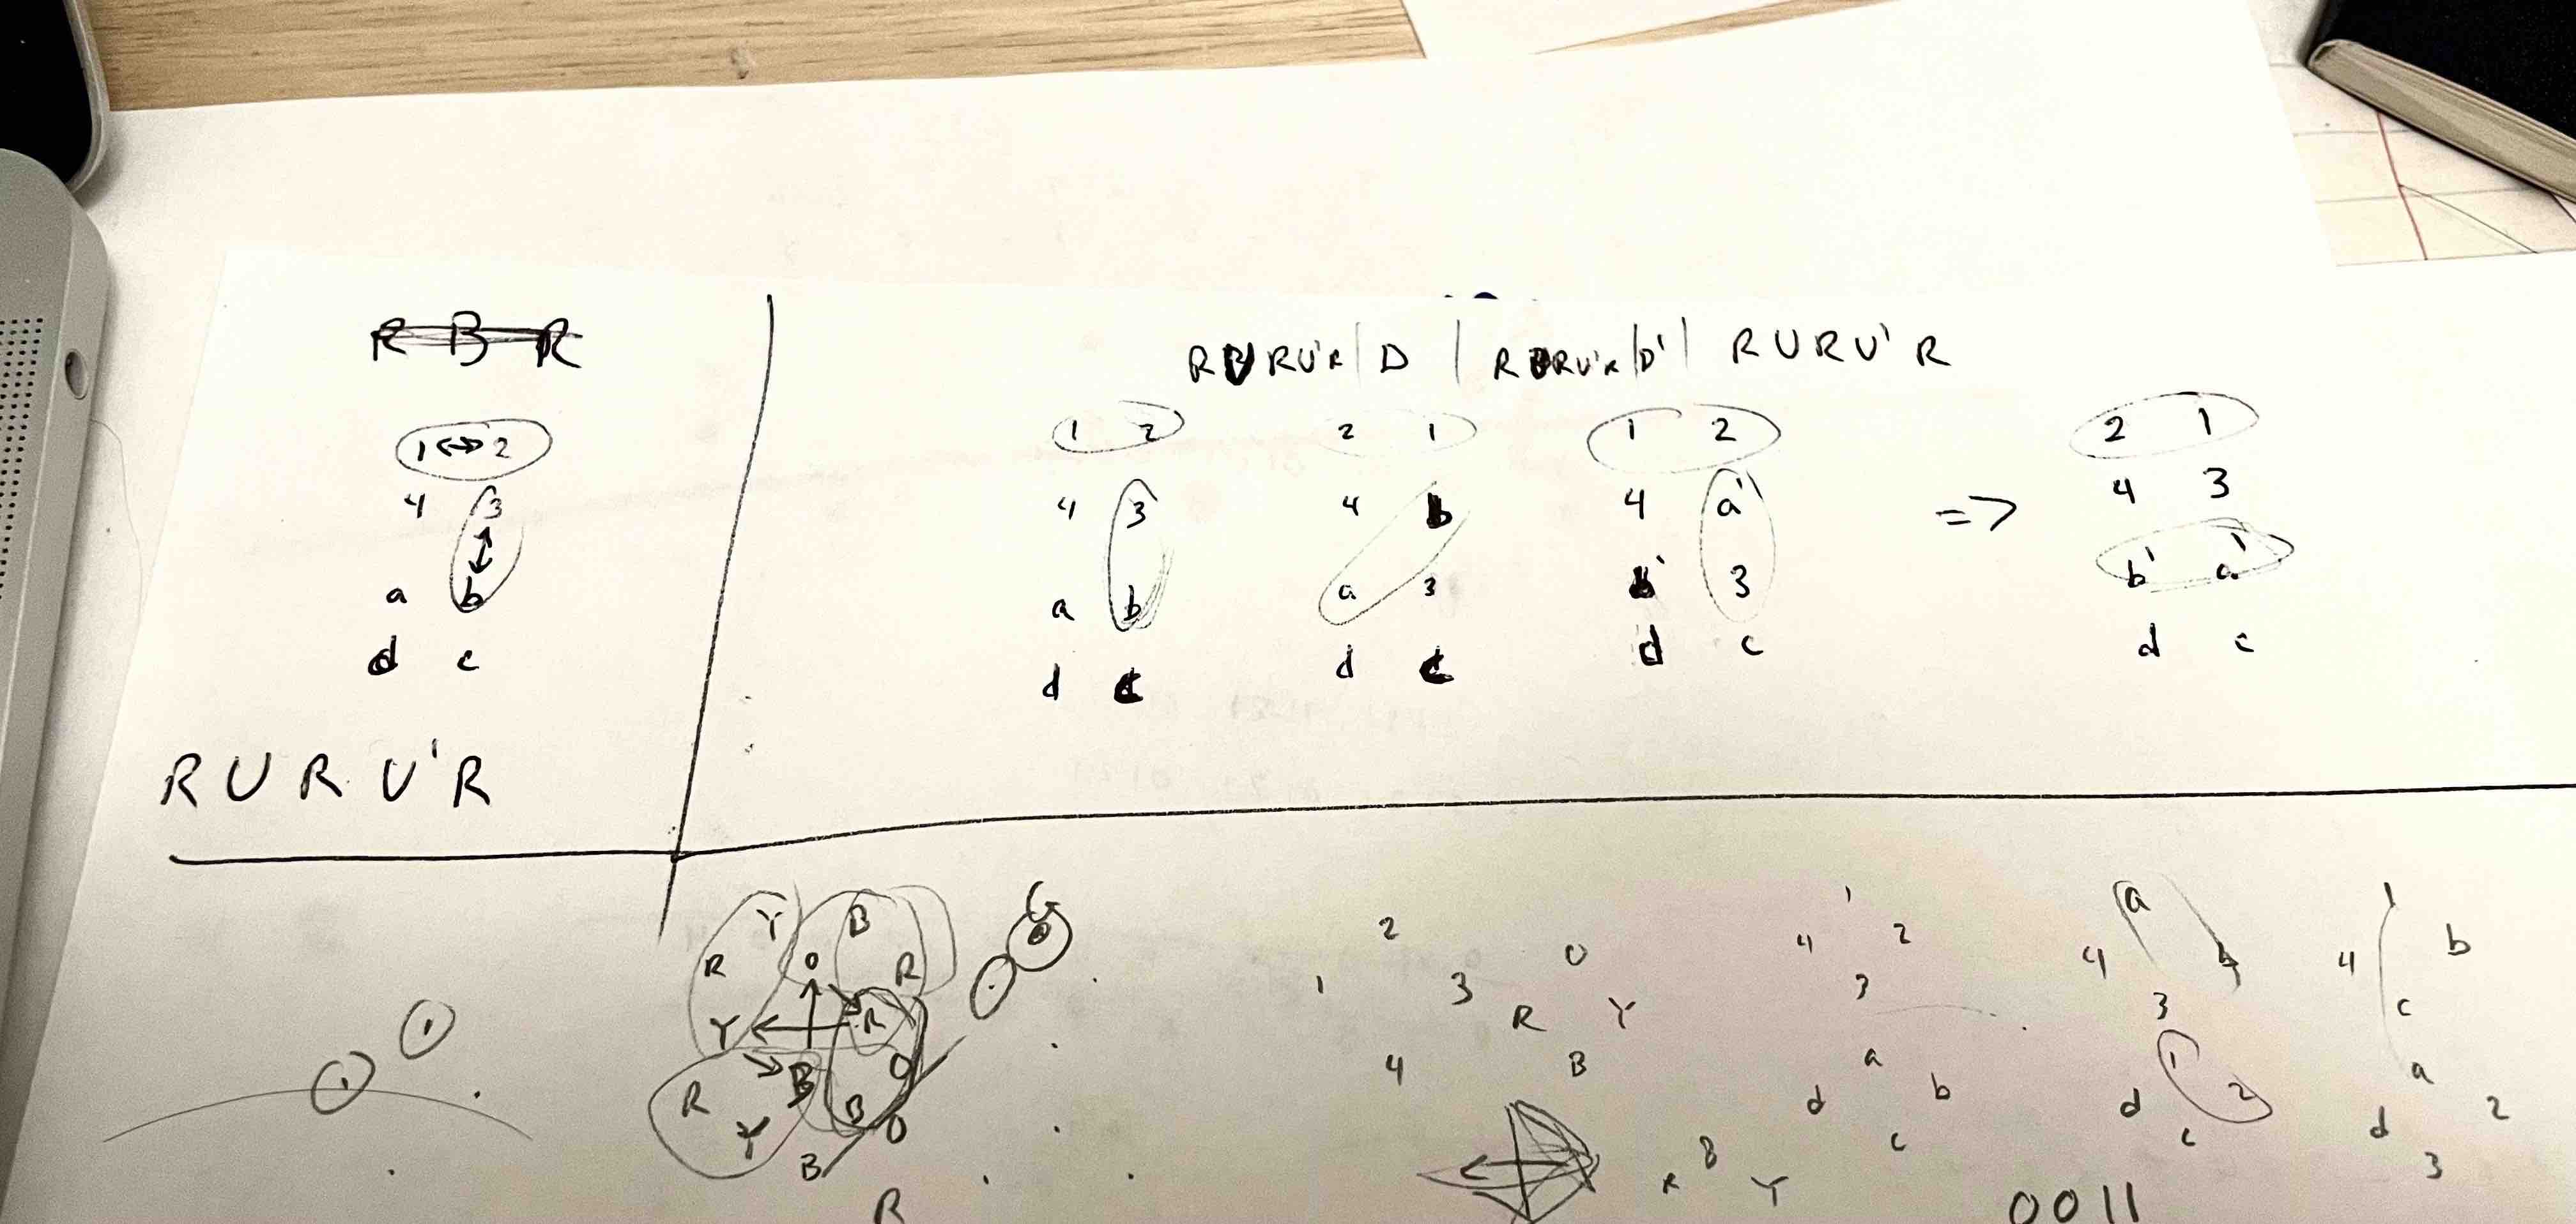 R B R
1 ↔ 2
4 3
↕
a b
d c
R U R U' R
R U R U' R | D | R U R U' R | D' | R U R U' R
1 2 2 1 1 2 2 1
4 3 4 b 4 a' => 4 3
a b a 3 b' 3 b' a'
d c d c d c d c
Y B
R O R
Y R
B O
R B
Y O
B
R
2
1 3
4
O
R Y
B
1
4 2
3
a
d b
c
B
R Y
a
4 b
3
1
d 2
c
1
4 b
c
a
d 2
3
0011